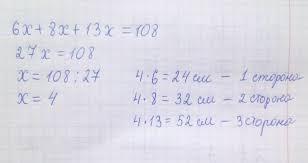 6x+8x+13x=108
27x=108
x=108:27
x=4
4·6=24см – 1 сторона
4·8=32 см – 2 сторона
4·13=52 см – 3 сторона